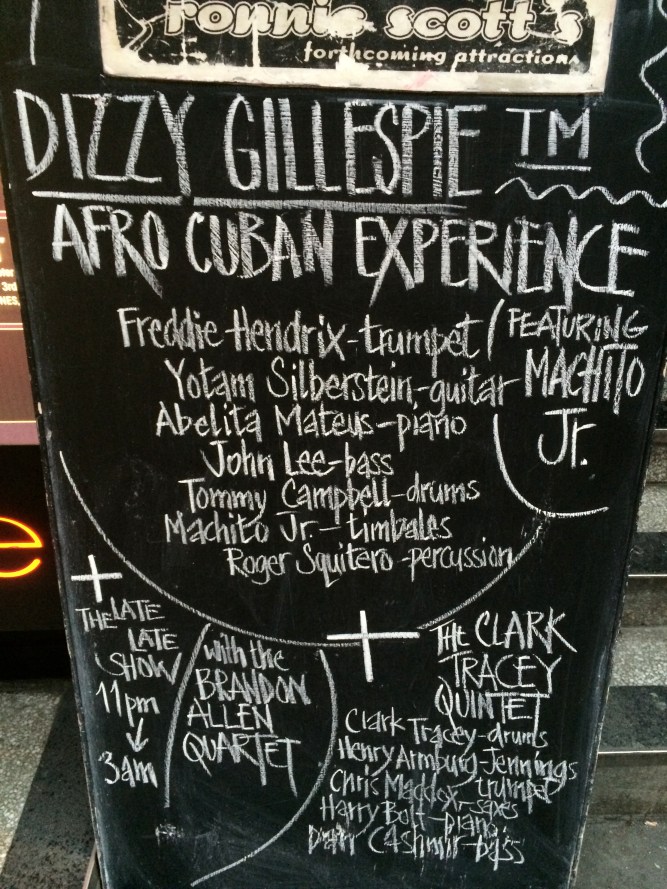 ronnie scott's
forthcoming attractions
DIZZY GILLESPIE TM
AFRO CUBAN EXPERIENCE
Freddie Hendrix-trumpet
Yotam Silberstein-guitar
Abelita Mateus-piano
John Lee-bass
Tommy Campbell-drums
Machito Jr.-timbales
Roger Squitero-percussion
FEATURING
MACHITO
Jr.
+
THE LATE
LATE
SHOW
11pm
↓
3am
with the
BRANDON
ALLEN
QUARTET
+
THE CLARK
TRACEY
QUINTET
Clark Tracey-drums
Henry Armburg-Jennings
trumpet
Chris Maddox-saxes
Harry Bolt-piano
Cashmir-bass
3rd
e